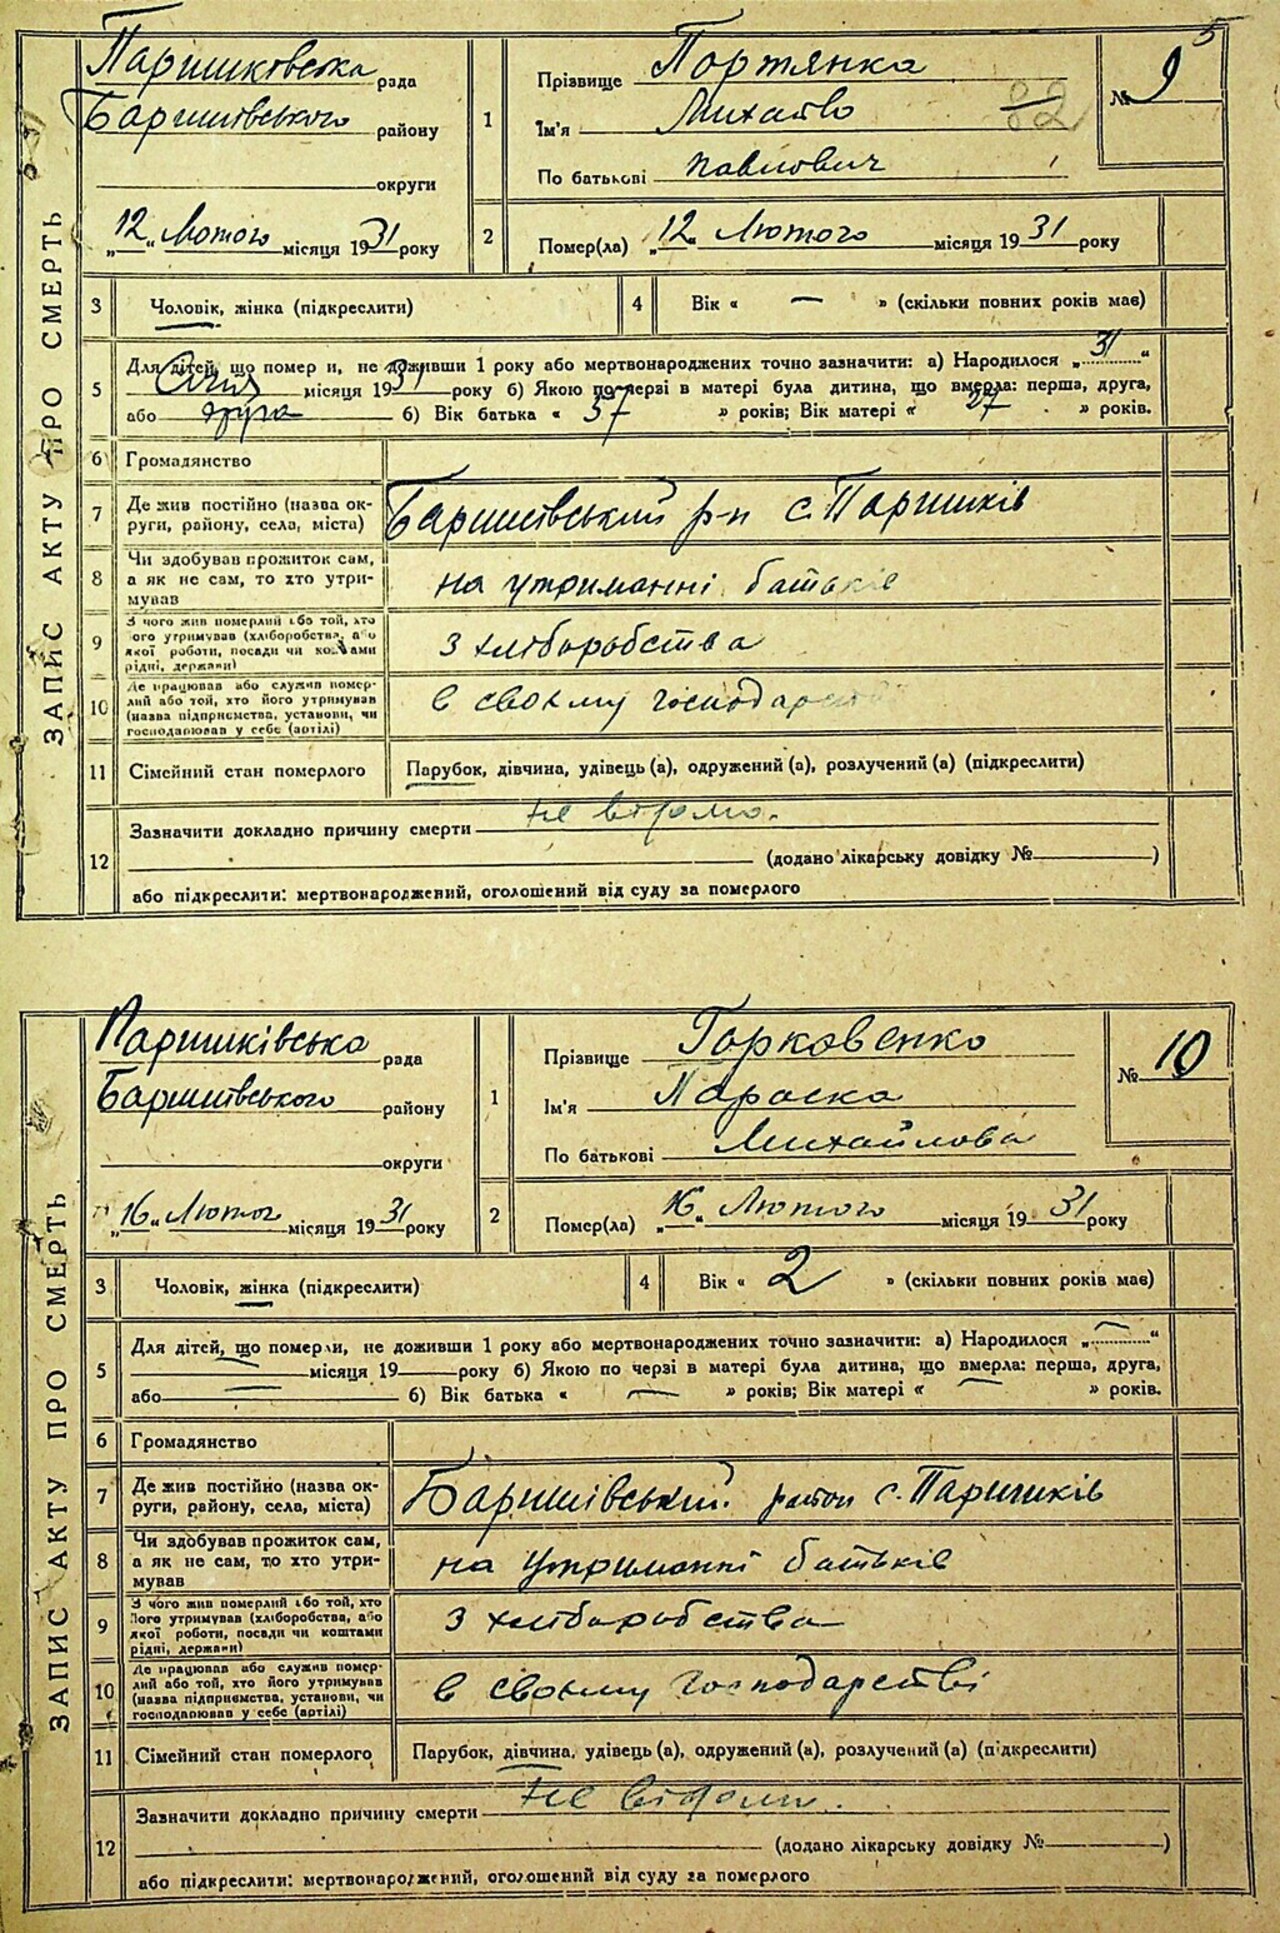 5
ЗАПИС АКТУ ПРО СМЕРТЬ
Паришківська рада
Баришівського району
округи
„12“ Лютого місяця 1931 року
1
Прізвище Портянка
Ім'я Михайло
По батькові Павлович
82
№ 9
2
Помер(ла) „12“ Лютого місяця 1931 року
3 Чоловік, жінка (підкреслити)
4 Вік « — » (скільки повних років має)
5 Для дітей, що померли, не доживши 1 року або мертвонароджених точно зазначити: а) Народилося „31“
Січня місяця 1931 року б) Якою по черзі в матері була дитина, що вмерла: перша, друга,
або друга б) Вік батька « 37 » років; Вік матері « 27 » років.
6 Громадянство
7 Де жив постійно (назва ок-
руги, району, села, міста) Баришівський р-н с. Паришків
8 Чи здобував прожиток сам,
а як не сам, то хто утри-
мував на утриманні батьків
9 З чого жив померлий або той, хто
його утримував (хліборобства, або
якої роботи, посади чи коштами
рідні, держави) з хліборобства
10 Де працював або служив помер-
лий або той, хто його утримував
(назва підприємства, установи, чи
господарював у себе (артілі) в своєму господарстві
11 Сімейний стан померлого Парубок, дівчина, удівець (а), одружений (а), розлучений (а) (підкреслити)
12 Зазначити докладно причину смерти не відомо.
(додано лікарську довідку № )
або підкреслити: мертвонароджений, оголошений від суду за померлого
ЗАПИС АКТУ ПРО СМЕРТЬ
Паришківська рада
Баришівського району
округи
„16“ Лютог місяця 1931 року
1
Прізвище Горковенко
Ім'я Параска
По батькові Михайлова
№ 10
2
Помер(ла) „16“ Лютого місяця 1931 року
3 Чоловік, жінка (підкреслити)
4 Вік « 2 » (скільки повних років має)
5 Для дітей, що померли, не доживши 1 року або мертвонароджених точно зазначити: а) Народилося „—“
— місяця 19 року б) Якою по черзі в матері була дитина, що вмерла: перша, друга,
або — б) Вік батька « — » років; Вік матері « — » років.
6 Громадянство
7 Де жив постійно (назва ок-
руги, району, села, міста) Баришівський район с. Паришків
8 Чи здобував прожиток сам,
а як не сам, то хто утри-
мував на утриманні батьків
9 З чого жив померлий або той, хто
його утримував (хліборобства, або
якої роботи, посади чи коштами
рідні, держави) з хліборобства
10 Де працював або служив помер-
лий або той, хто його утримував
(назва підприємства, установи, чи
господарював у себе (артілі) в своєму господарстві
11 Сімейний стан померлого Парубок, дівчина, удівець (а), одружений (а), розлучений (а) (підкреслити)
12 Зазначити докладно причину смерти не відомо.
(додано лікарську довідку № )
або підкреслити: мертвонароджений, оголошений від суду за померлого